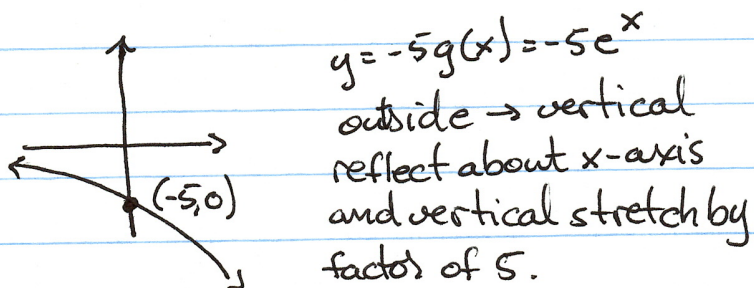 y=-5g(x)=-5e^x
outside → vertical
reflect about x-axis
(-5,0)
and vertical stretch by
factor of 5.